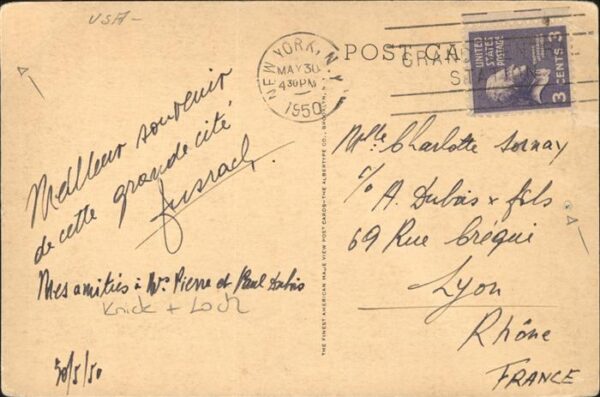 USA-
POST CA
NEW YORK, N.Y.
MAY 30
4 30 PM
1950
GRAN
UNITED
STATES
POSTAGE
3 CENTS 3
Meilleur souvenir
de cette grande cité
Mes amitiés à Mrs Pierre et Paul Dubois
Knick + Loch
30/5/50
THE FINEST AMERICAN MADE VIEW POST CARDS—THE ALBERTYPE CO., BROOKLYN, N.Y.
Melle Charlotte Sornay
c/o A. Dubois & fils
69 Rue Créqui
Lyon
Rhône
FRANCE